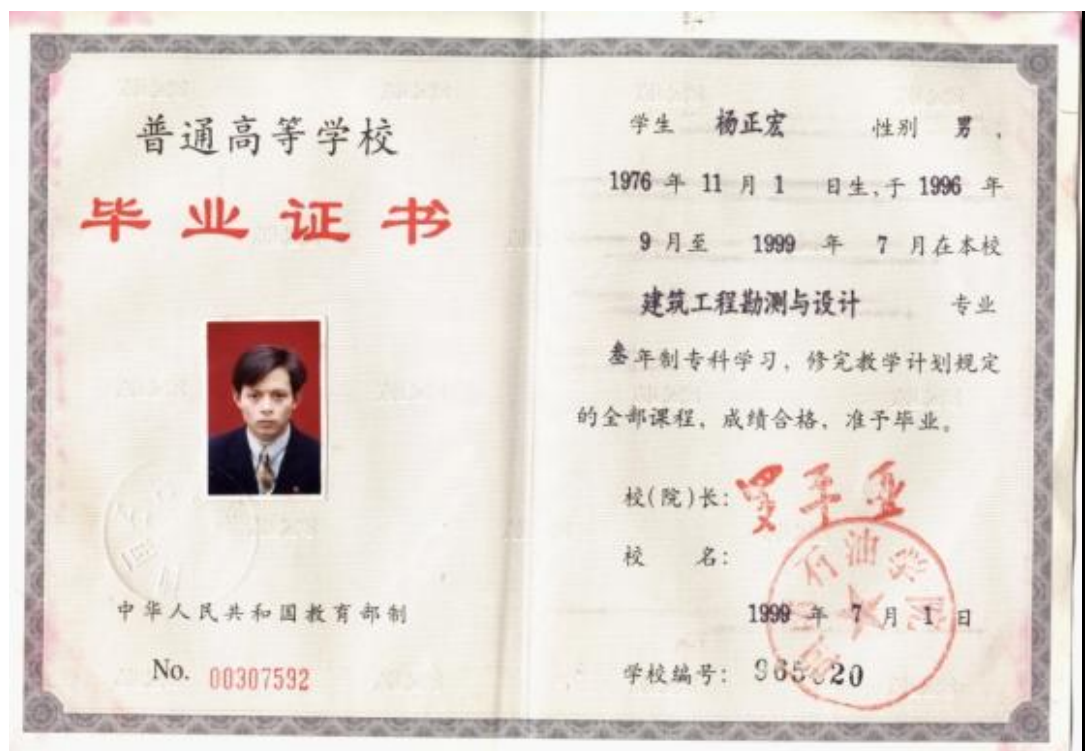 普通高等学校
毕业证书
中华人民共和国教育部制
No. 00307592
学生 杨正宏 性别 男，
1976 年 11 月 1 日生,于 1996 年
9 月至 1999 年 7 月在本校
建筑工程勘测与设计 专业
叁年制专科学习，修完教学计划规定
的全部课程，成绩合格，准予毕业。
校(院)长: 罗平亚
校 名:
石油学院
1999 年 7 月 1 日
学校编号: